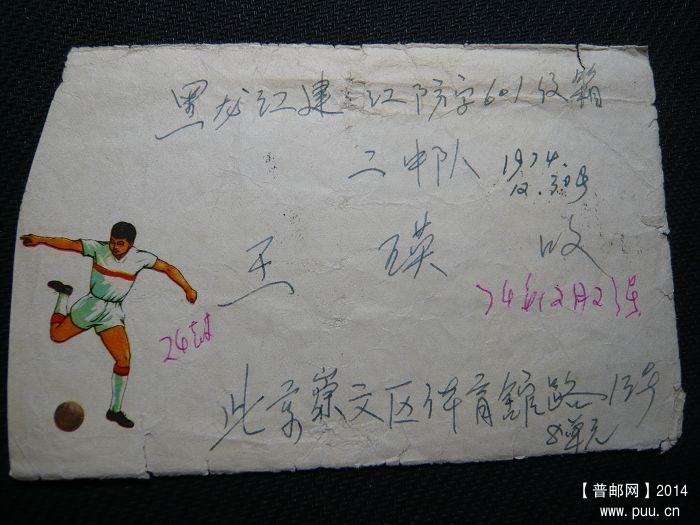 黑龙江建江防字601信箱
二中队
1974.
12.30号
王 瑛 收
74年12月23号
24封
北京崇文区体育馆路15号
8单元
【普邮网】2014
www.puu.cn